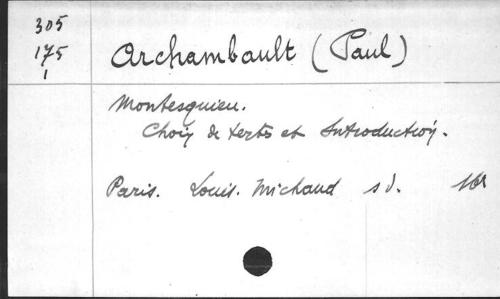 305
175
1
Archambault (Paul)
Montesquieu.
Choix de textes et Introduction.
Paris. Louis. Michaud s d.